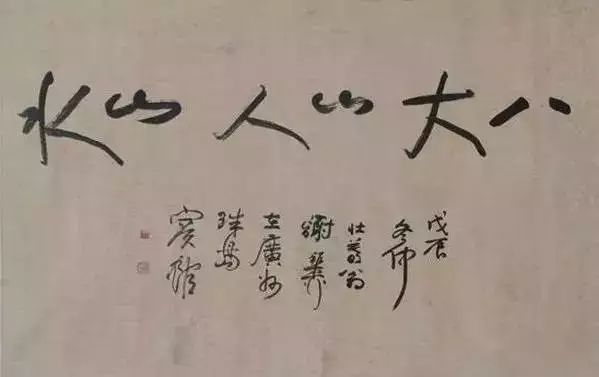 八大山人山水
戊辰
冬仲
壮暮翁
謝稚柳
在廣州
珠島
賓館